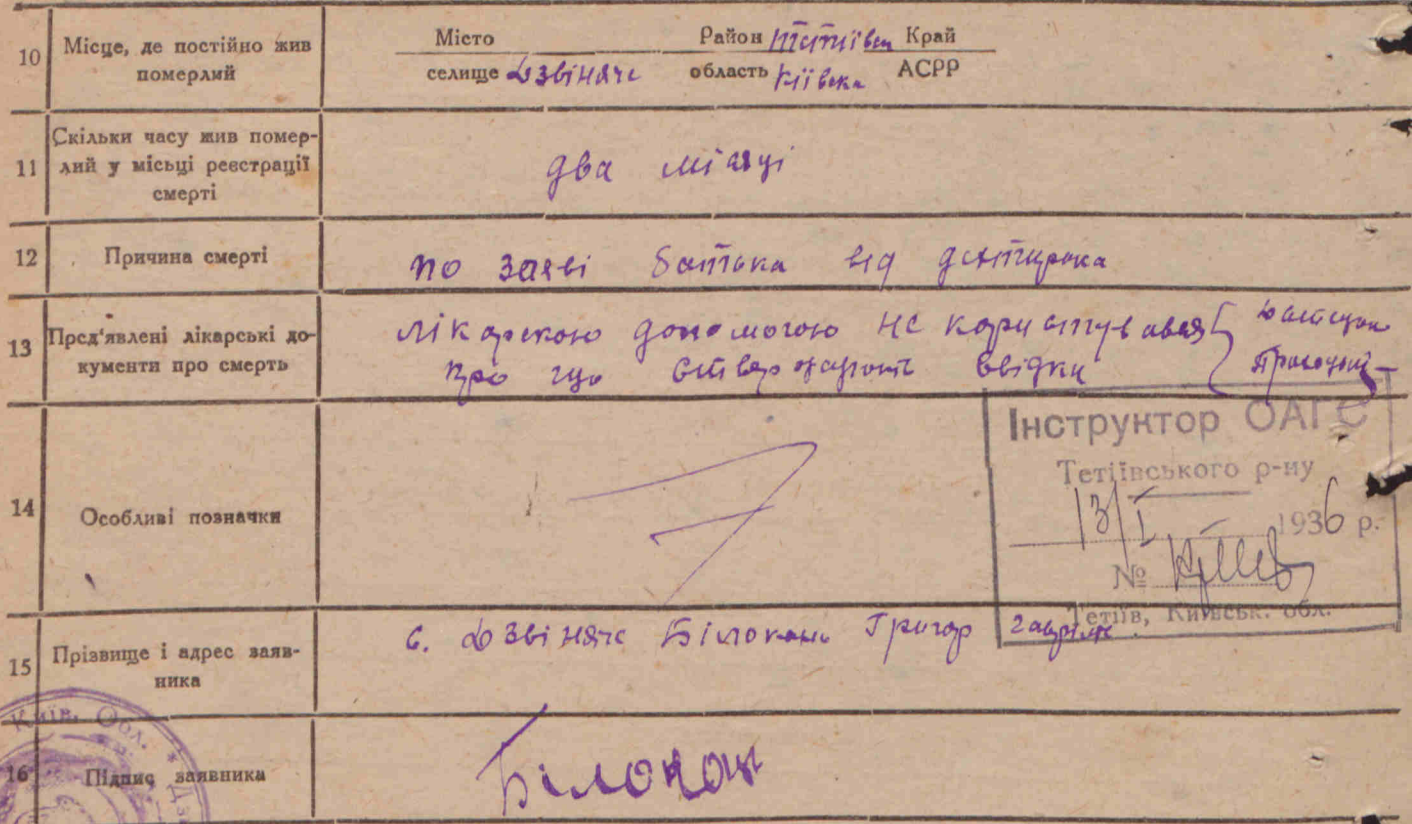 10 Місце, де постійно жив померлий
Місто Район Тетіївськ Край
селище Дзвіняче область Київська АСРР
11 Скільки часу жив помер-
лий у місьці реєстрації
смерті
два місяці
12 Причина смерті
по заяві батька від
13 Пред'явлені лікарські до-
кументи про смерть
лікарскою допомогою не користувався
про що свідки
14 Особливі позначки
Інструктор ОАГС
Тетіївського р-ну
13/I 1936 р.
№
Тетіїв, Київськ. обл.
15 Прізвище і адрес заяв-
ника
с. Дзвіняче Білоконь Григор
16 Підпис заявника
Білоконь
Київ. Обл. * Дзв